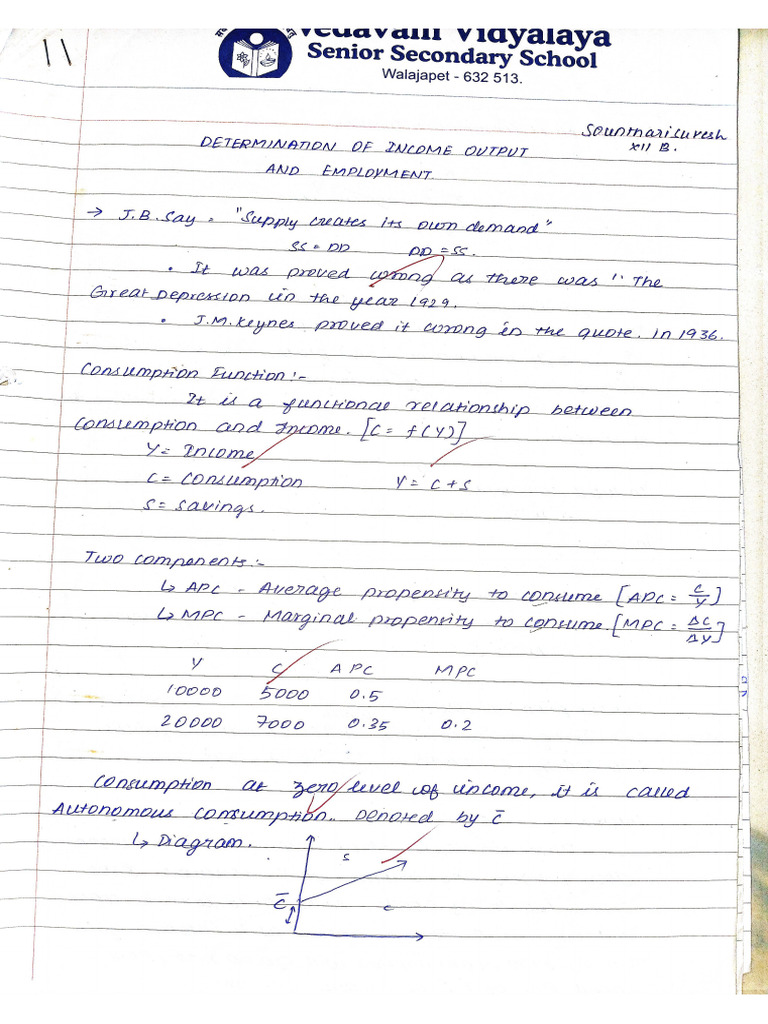 11
Vedavalli Vidyalaya
Senior Secondary School
Walajapet - 632 513.
XII B.
DETERMINATION OF INCOME OUTPUT
AND EMPLOYMENT
→ J.B. Say = "Supply creates its own demand"
SS = DD DD = SS.
• It was proved wrong as there was " The
Great Depression in the year 1929.
• J.M. Keynes proved it wrong in the quote. In 1936.
Consumption Function:-
It is a functional relationship between
Consumption and Income. [C = f(Y)]
Y = Income
C = Consumption Y = C + S
S = Savings.
Two components:-
↳ APC - Average propensity to consume [APC = C/Y]
↳ MPC - Marginal propensity to consume [MPC = ΔC/ΔY]
Y C APC MPC
10000 5000 0.5
20000 7000 0.35 0.2
Consumption at zero level of income, it is called
Autonomous consumption. Denoted by C̅
↳ Diagram.
S
C̅
C